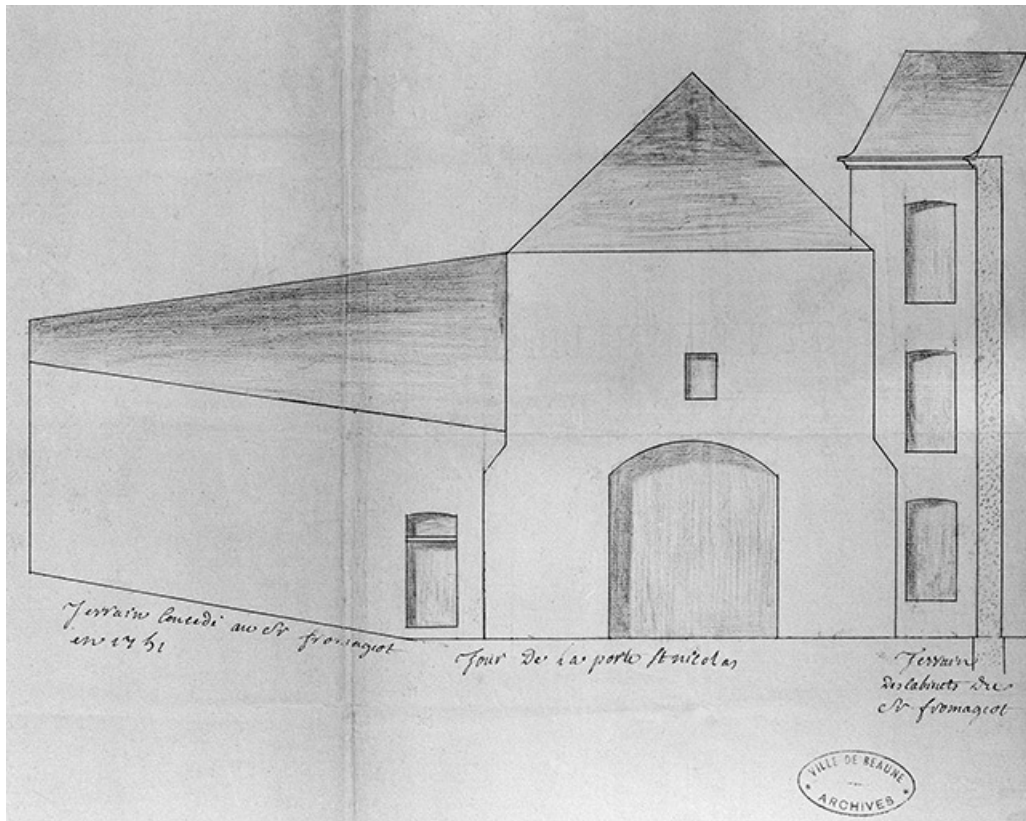 Terrain Concédé au Sr fromageot
en 1751
Tour de La porte St nicolas
Terrain
des Cabinets du
Sr fromageot
VILLE DE BEAUNE
ARCHIVES